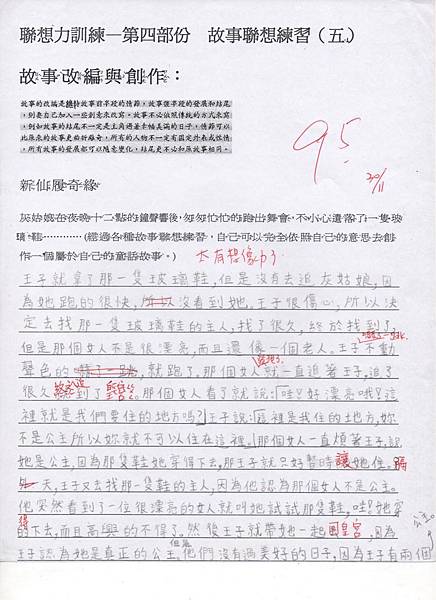 聯想力訓練—第四部份　故事聯想練習（五）
故事改編與創作：
故事的改編是維持故事前半段的情節，故事後半段的發展和結尾
，則要自己加入一些創意來改寫。故事不必依照傳統的方式來寫
，例如故事的結尾不一定是主角過著幸福美滿的日子，情節可以
比原來的故事更曲折離奇，所有的人物不一定有固定外表或性情，
所有故事的發展都可以隨意變化，結尾更不必和原故事相同。
95
30/11
新仙履奇緣
灰姑娘在夜晚十二點的鐘聲響後，匆匆忙忙的跑出舞會，不小心遺落了一隻玻
璃鞋…………（經過各種故事聯想練習，自己可以完全依照自己的意思去創
作一個屬於自己的童話故事。）
太有想像力了
王子就拿了那一隻玻璃鞋，但是沒有去追灰姑娘，因
為她跑的很快，所以沒看到她。王子很傷心，所以決
定去找那一隻玻璃鞋的主人，找了很久，終於找到了，
但是那個女人不是很漂亮，而且還像一個老人。王子不動
聲色的 就跑了。那個女人就一直追著王子，追了
很久 到了皇宮。那個女人看了就說：哇！好漂亮哦！這
裡就是我們要住的地方嗎？王子說：這裡是我住的地方，妳
不是公主所以妳就不可以住在這裡。那個女人一直煩著王子，說
她是公主，因為那隻鞋她穿得下去，那王子就只好暫時讓她住。隔
天，王子又去找那一隻鞋的主人，因為他認為那個女人不是公主。
他突然看到了一位很漂亮的女人就叫她試試那隻鞋，哇！她穿
得下去，而且高興的不得了。然後王子就帶她一起回皇宮，因為
王子認為她是真正的公主。但是他們沒有過美好的日子，因為王子有兩個
公主。